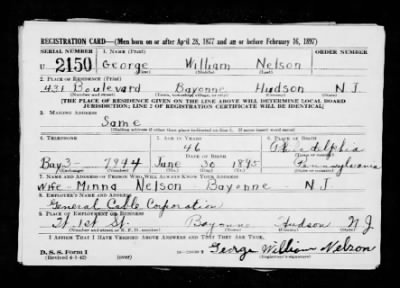 REGISTRATION CARD—(Men born on or after April 28, 1877 and on or before February 16, 1897)
SERIAL NUMBER 1. NAME (Print) ORDER NUMBER
U 2150 George William Nelson
(First) (Middle) (Last)
2. PLACE OF RESIDENCE (Print)
431 Boulevard Bayonne Hudson N J
(Number and street) (Town, township, village, or city) (County) (State)
[THE PLACE OF RESIDENCE GIVEN ON THE LINE ABOVE WILL DETERMINE LOCAL BOARD
JURISDICTION; LINE 2 OF REGISTRATION CERTIFICATE WILL BE IDENTICAL]
3. MAILING ADDRESS
Same
[Mailing address if other than place indicated on line 2. If same insert word same]
4. TELEPHONE 5. AGE IN YEARS 6. PLACE OF BIRTH
46 Philadelphia
DATE OF BIRTH (Town or county)
Bay 3- 7944 June 30 1895 Pennsylvania
(Exchange) (Number) (Mo.) (Day) (Yr.) (State or country)
7. NAME AND ADDRESS OF PERSON WHO WILL ALWAYS KNOW YOUR ADDRESS
Wife - Minna Nelson Bayonne N J
8. EMPLOYER'S NAME AND ADDRESS
General Cable Corporation
9. PLACE OF EMPLOYMENT OR BUSINESS
1st St. Bayonne Hudson N J
(Number and street or R. F. D. number) (Town) (County) (State)
I AFFIRM THAT I HAVE VERIFIED ABOVE ANSWERS AND THAT THEY ARE TRUE.
D. S. S. Form 1
(Revised 4-1-42) (over) George William Nelson